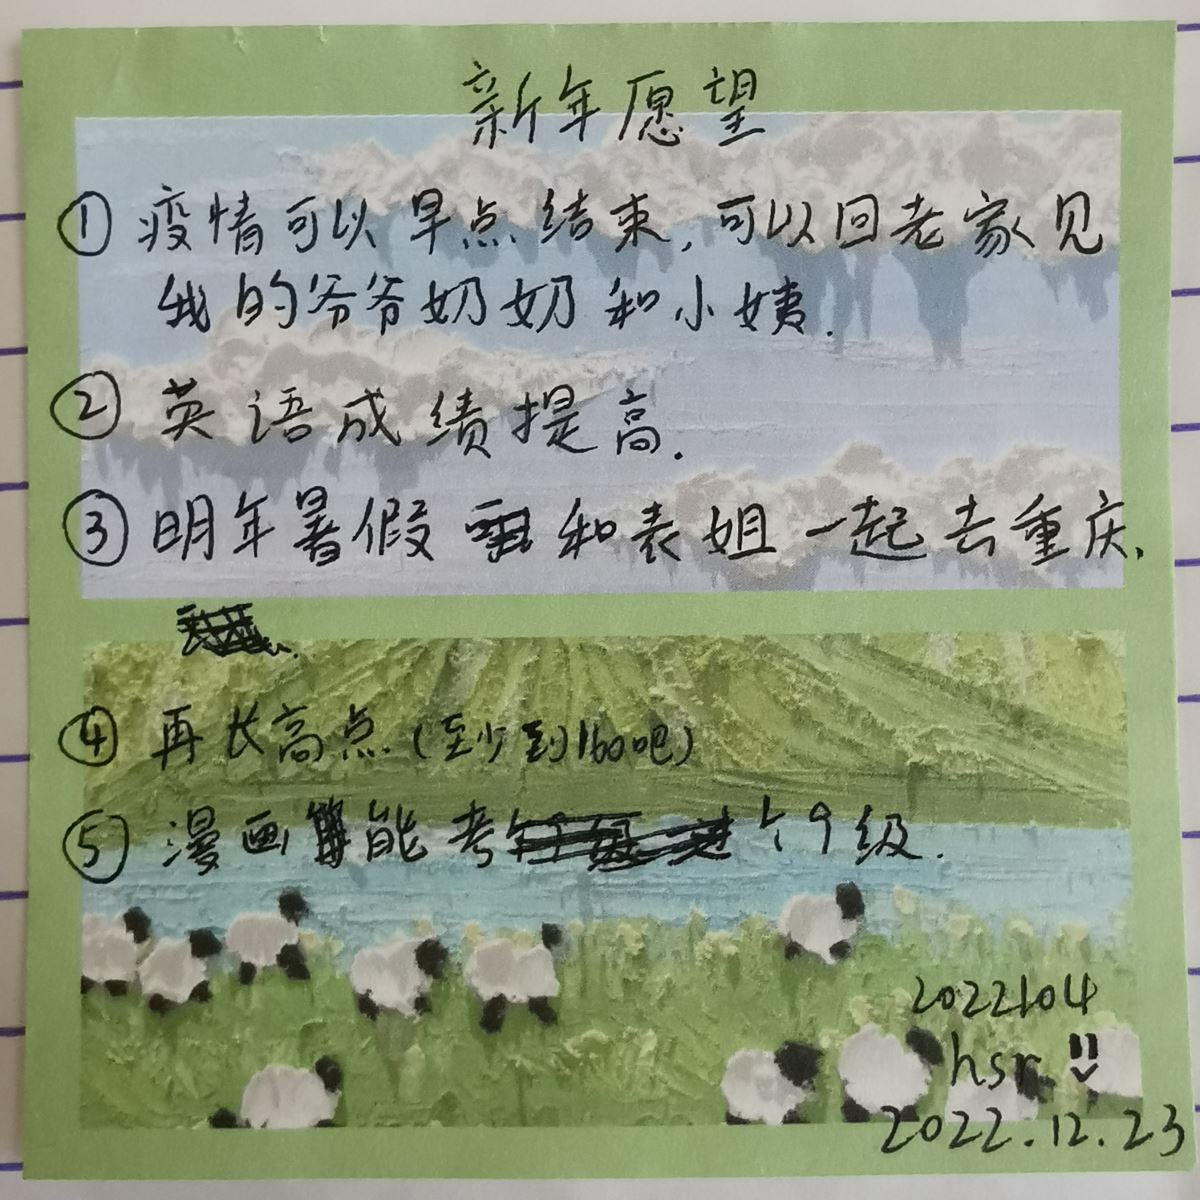 新年愿望
①疫情可以早点结束,可以回老家见
我的爷爷奶奶和小姨.
②英语成绩提高.
③明年暑假和表姐一起去重庆.
④再长高点(至少到160吧)
⑤漫画能考 9级.
20221104
hsr
2022.12.23